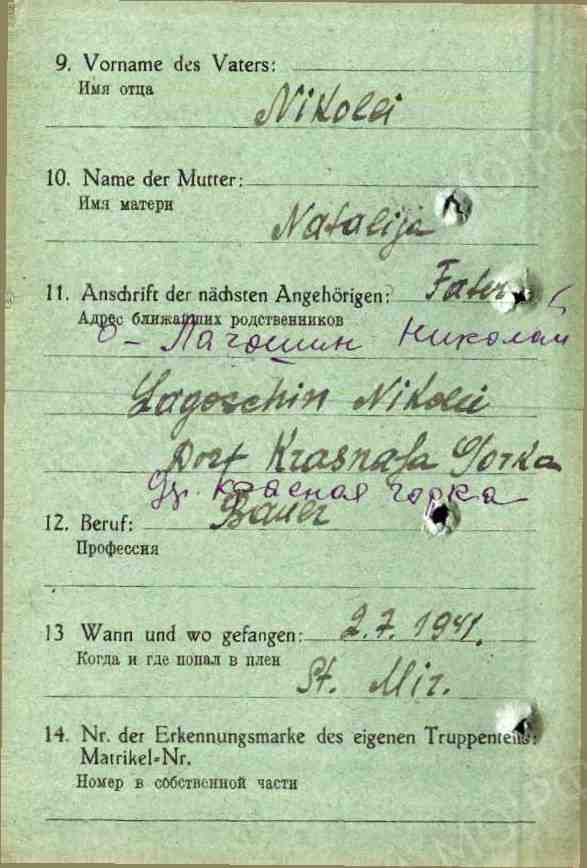 9. Vorname des Vaters:
Имя отца
Nikolai
10. Name der Mutter:
Имя матери
Natalija
11. Anschrift der nächsten Angehörigen: Fater
Адрес ближайших родственников
о – Лагошин Николай
Lagoschin Nikolai
Dorf Krasnaja Gorka
Др. красная горка
12. Beruf: Bauer
Профессия
13 Wann und wo gefangen: 2.7.1941.
Когда и где попал в плен
St. Mir.
14. Nr. der Erkennungsmarke des eigenen Truppenteils:
Matrikel-Nr.
Номер в собственной части